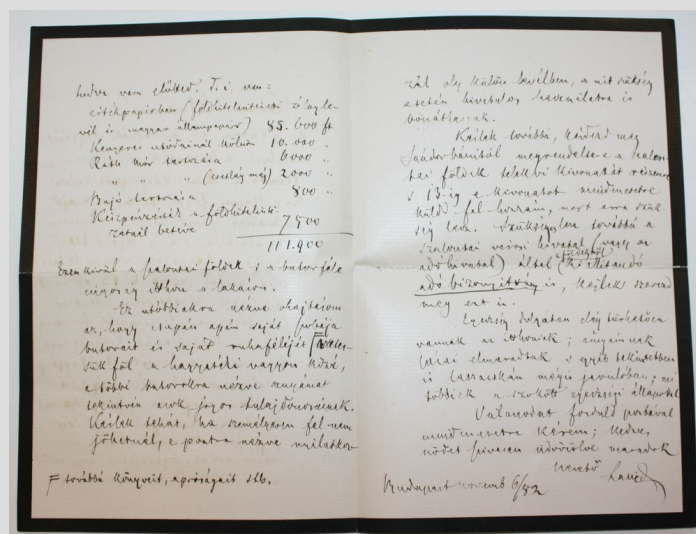 tudva nem előtted. T. i. van:
értékpapirban (földhitelintézeti záloglevél
és magyar állampapir) 85.000 ft
10.000 "
Ráth Mór tartozása 6000 "
" " " (esetleg még) 2000 "
Bajó tartozása 800 "
Készpénzérték a földhitelinté-
zetnél betéve 7500
111.900
Ezen kivül a szalontai földek s a butorféle
ingóság itthon a lakáson.
Ez utóbbiakra nézve ohajtásom
az, hogy csupán apám saját szobája
butorait és saját ruhaféléjét F vétes-
sük föl a hagyatéki vagyon közé,
a többi butorokra nézve anyámat
tekintvén azok jogos tulajdonosának.
Kérlek tehát, ha személyesen fel nem
jöhetnél, e pontra nézve nyilatkoz-
F továbbá könyveit, apróságait stb.
zál oly külön levélben, a mit szükség
esetén hivatalos használatra is
Kérlek továbbá, kérdezd meg
megrendelte-e a szalon-
tai földek telekkvi kivonatát
s 13-ig a kivonatot
küldd fel hozzám, mert arra szük-
ség lesz. Szükséges továbbá a
szalontai városi hivatal (vagy az
adóhivatal) által kiállitandó
adó bizonyitvány is, kérlek szerezd
meg ezt is.
Egészség dolgában elég türhetően
vannak az itthoniak; anyámnak
lázai elmaradtak s egyéb tekintetben
is javulóban; mi
többiek a szokott egészségi állapotban
Válaszodat fordúló postával
kérem; kedves
nődet szivesen üdvözölve maradok
szerető Laczid
Budapest novemb 6/82